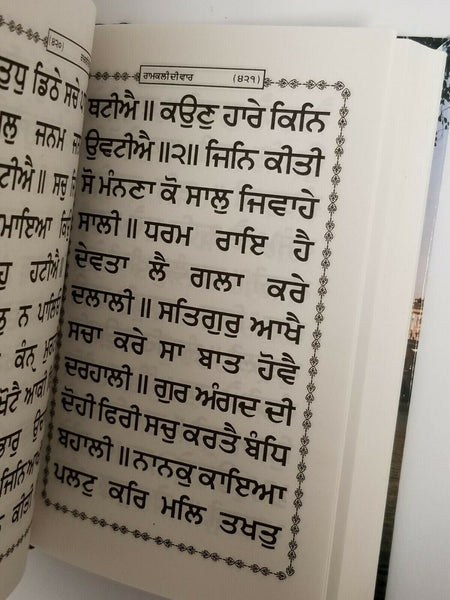 (੪੨੦)
ਤੁਧੁ ਡਿਠੇ ਸਚੇ
ਜਨਮ
ਸਚੁ
ਮਾਇਆ
ਹਟੀਐ॥
ਨ
ਕੰਨੁ
ਰਾਮਕਲੀ ਦੀ ਵਾਰ (੪੨੧)
ਥਟੀਐ॥ ਕਉਣੁ ਹਾਰੇ ਕਿਨਿ
ਉਵਟੀਐ॥੨॥ ਜਿਨਿ ਕੀਤੀ
ਸੋ ਮੰਨਣਾ ਕੋ ਸਾਲੁ ਜਿਵਾਹੇ
ਸਾਲੀ॥ ਧਰਮ ਰਾਇ ਹੈ
ਦੇਵਤਾ ਲੈ ਗਲਾ ਕਰੇ
ਦਲਾਲੀ॥ ਸਤਿਗੁਰੁ ਆਖੈ
ਸਚਾ ਕਰੇ ਸਾ ਬਾਤ ਹੋਵੈ
ਦਰਹਾਲੀ॥ ਗੁਰ ਅੰਗਦ ਦੀ
ਦੋਹੀ ਫਿਰੀ ਸਚੁ ਕਰਤੈ ਬੰਧਿ
ਬਹਾਲੀ॥ ਨਾਨਕੁ ਕਾਇਆ
ਪਲਟੁ ਕਰਿ ਮਲਿ ਤਖਤੁ